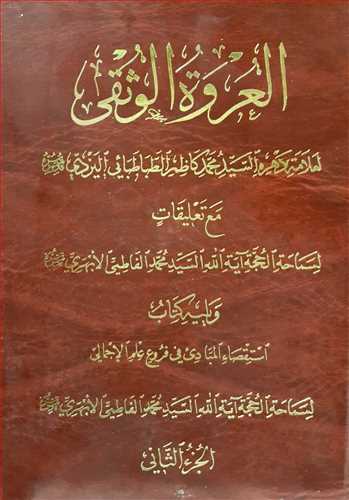 العروة الوثقى
لعلامة دهره السيد محمد كاظم الطباطبائي اليزدي قدس سره
مع تعليقات
لسماحة الحجة آية الله السيد محمد الفاطمي الأبهري
ويليه كتاب
استقصاء المبادئ في فروع علم الإجمالي
لسماحة الحجة آية الله السيد محمد الفاطمي الأبهري
الجزء الثاني